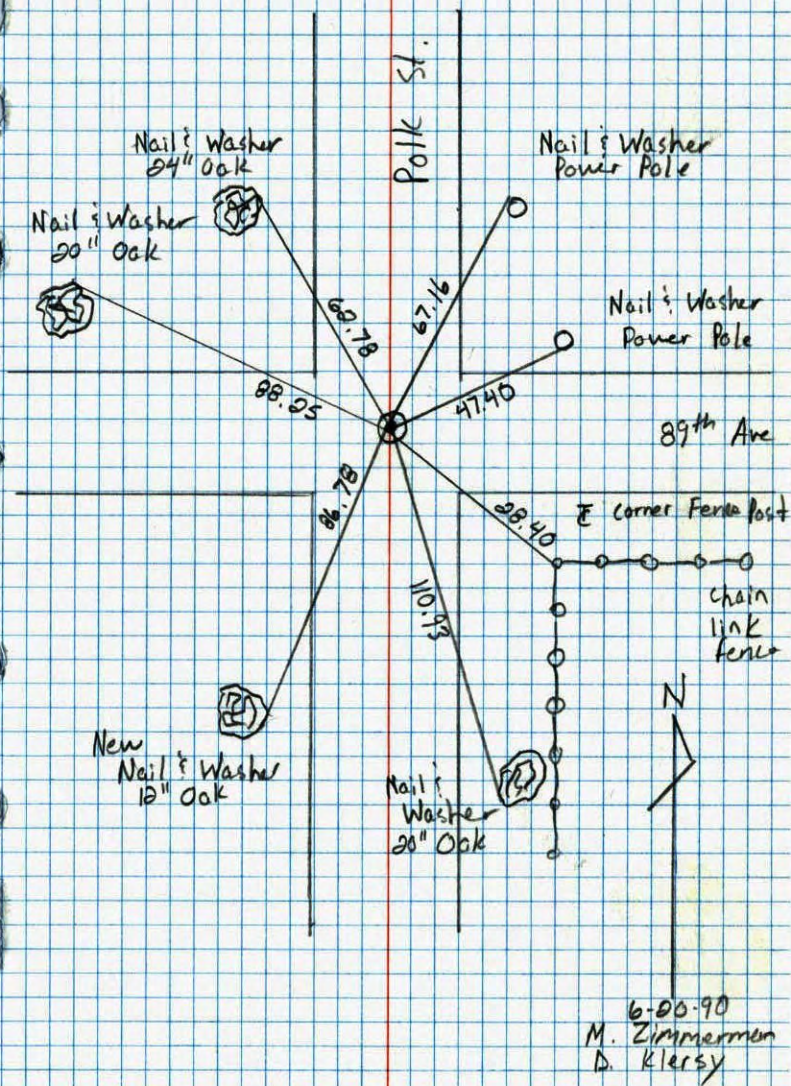 Polk St.
Nail & Washer
24" Oak
Nail & Washer
Power Pole
Nail & Washer
20" Oak
Nail & Washer
Power Pole
62.78
67.16
88.25
47.40
89th Ave
86.78
28.40
℄ Corner Fence Post
110.93
chain
link
fence
N
New
Nail & Washer
12" Oak
Nail &
Washer
20" Oak
6-20-90
M. Zimmerman
D. Klersy